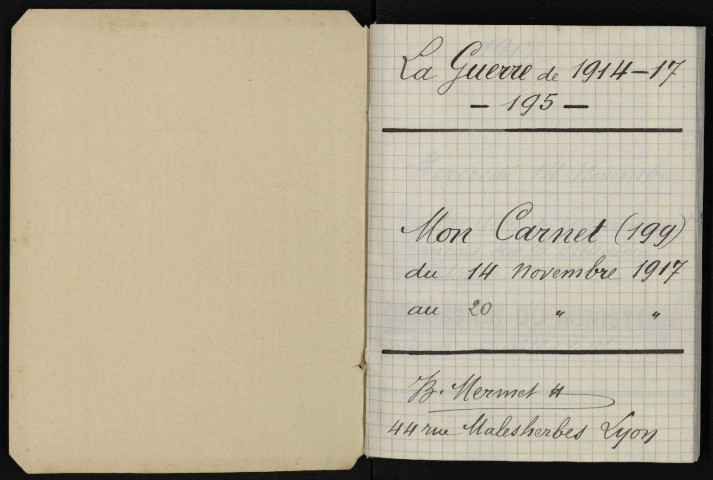 La Guerre de 1914-17
- 195 -
Mon Carnet (199)
du 14 novembre 1917
au 20 " "
B. Mermet
44 rue Malesherbes Lyon